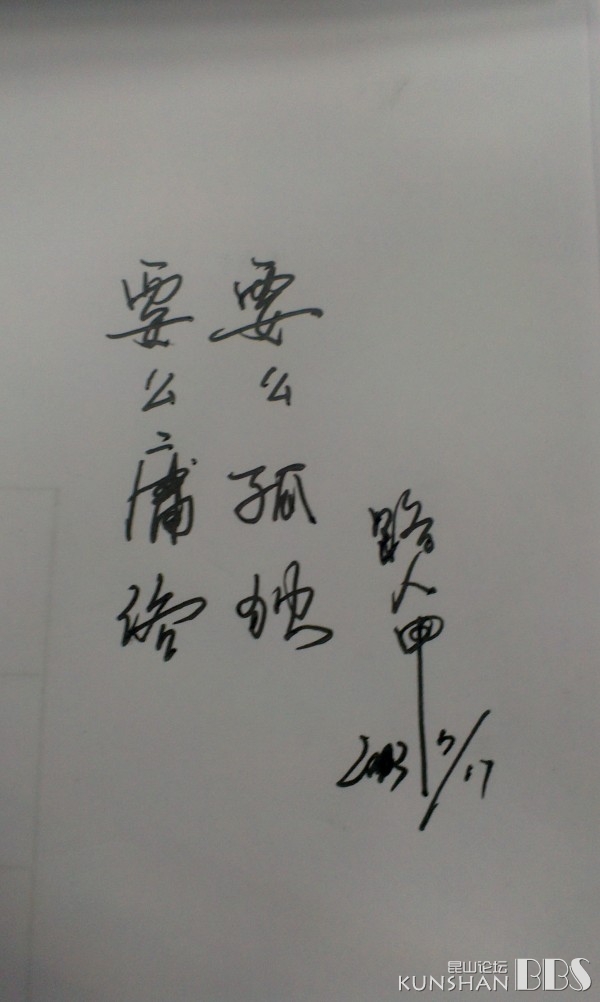 要么庸俗
要么孤独
路人甲
2013 5/17
昆山论坛
KUNSHAN BBS